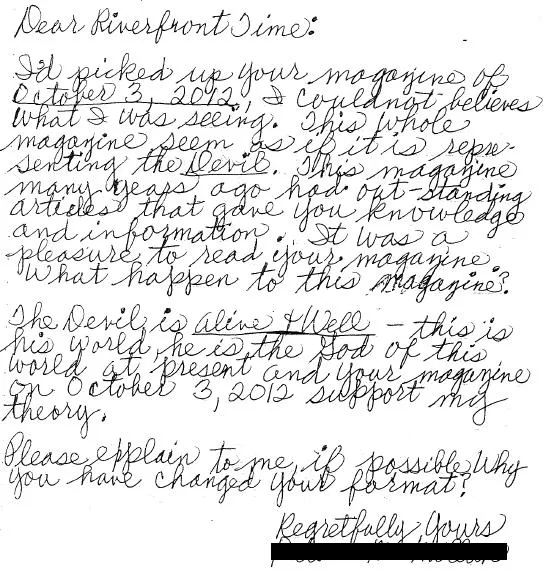 Dear Riverfront Time:
I'd picked up your magazine of
October 3, 2012, I could not believes
what I was seeing. This whole
magazine seem as if it is repre-
senting the Devil. This magazine
many years ago had out-standing
articles that gave you knowledge
and information. It was a
pleasure to read your magazine.
What happen to this magazine?
The Devil is alive & Well - this is
his world, he is the God of this
world at present and your magazine
on October 3, 2012 support my
theory.
Please epplain to me, if possible, Why
you have changed your format?
Regretfully Yours